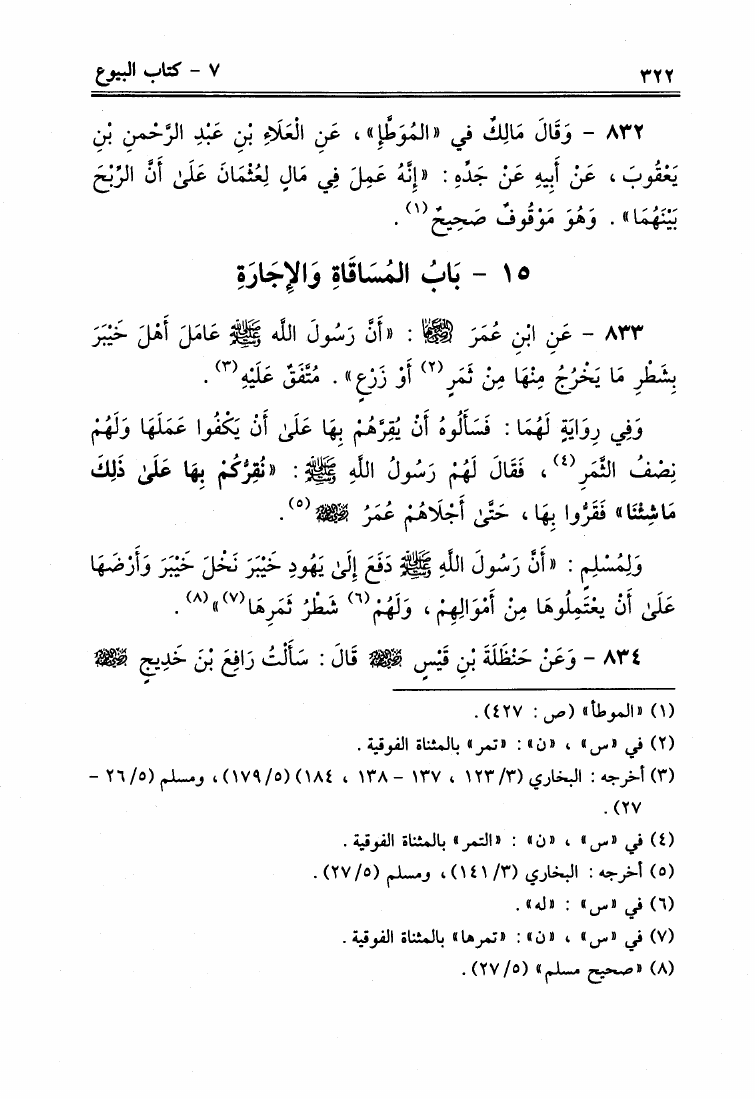 ٣٢٢
٧ - كتاب البيوع
٨٣٢ - وَقَالَ مَالِكٌ في «المُوَطَّإِ» ، عَنِ الْعَلَاءِ بْنِ عَبْدِ الرَّحْمنِ بْنِ
يَعْقُوبَ ، عَنْ أَبِيهِ عَنْ جَدِّهِ : «إِنَّهُ عَمِلَ فِي مَالٍ لِعُثْمَانَ عَلَىٰ أَنَّ الرِّبْحَ
بَيْنَهُمَا» . وَهُوَ مَوْقُوفٌ صَحِيحٌ(١) .
١٥ - بَابُ المُسَاقَاةِ وَالإِجَارَةِ
٨٣٣ - عَنِ ابْنِ عُمَرَ رضي الله عنهما : «أَنَّ رَسُولَ اللَّه ﷺ عَامَلَ أَهْلَ خَيْبَرَ
بِشَطْرِ مَا يَخْرُجُ مِنْهَا مِنْ ثَمَرٍ(٢) أَوْ زَرْعٍ» . مُتَّفَقٌ عَلَيْهِ(٣) .
وَفِي رِوَايَةٍ لَهُمَا : فَسَأَلُوهُ أَنْ يُقِرَّهُمْ بِهَا عَلَىٰ أَنْ يَكْفُوا عَمَلَهَا وَلَهُمْ
نِصْفُ الثَّمَرِ(٤) ، فَقَالَ لَهُمْ رَسُولُ اللَّهِ ﷺ : «نُقِرُّكُمْ بِهَا عَلَىٰ ذَلِكَ
مَاشِئْنَا» فَقَرُّوا بِهَا ، حَتَّىٰ أَجْلَاهُمْ عُمَرُ رضي الله عنه(٥) .
وَلِمُسْلِمٍ : «أَنَّ رَسُولَ اللَّهِ ﷺ دَفَعَ إِلَىٰ يَهُودِ خَيْبَرَ نَخْلَ خَيْبَرَ وَأَرْضَهَا
عَلَىٰ أَنْ يَعْتَمِلُوهَا مِنْ أَمْوَالِهِمْ ، وَلَهُمْ(٦) شَطْرُ ثَمَرِهَا(٧)»(٨) .
٨٣٤ - وَعَنْ حَنْظَلَةَ بْنِ قَيْسٍ رضي الله عنه قَالَ : سَأَلْتُ رَافِعَ بْنَ خَدِيجٍ رضي الله عنه
(١) «الموطأ» (ص : ٤٢٧) .
(٢) في «س» ، «ن» : «تمر» بالمثناة الفوقية .
(٣) أخرجه : البخاري (٣/ ١٢٣ ، ١٣٧ - ١٣٨ ، ١٨٤) (٥/ ١٧٩) ، ومسلم (٥/ ٢٦ -
٢٧) .
(٤) في «س» ، «ن» : «التمر» بالمثناة الفوقية .
(٥) أخرجه : البخاري (٣/ ١٤١) ، ومسلم (٥/ ٢٧) .
(٦) في «س» : «له» .
(٧) في «س» ، «ن» : «تمرها» بالمثناة الفوقية .
(٨) «صحيح مسلم» (٥/ ٢٧) .